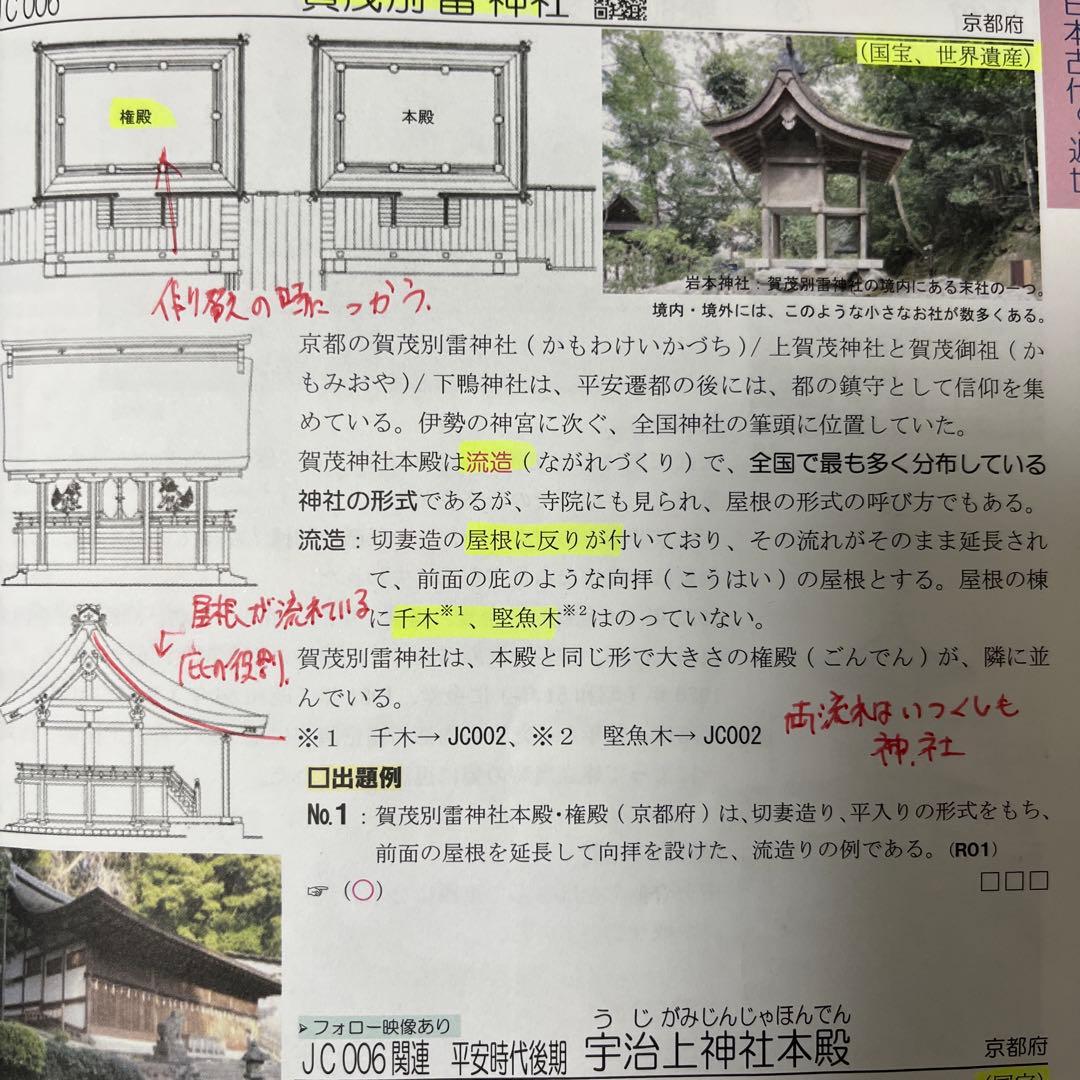 JC006
賀茂別雷神社
京都府
(国宝、世界遺産)
日本古代
権殿
本殿
作り替えの時につかう.
岩本神社:賀茂別雷神社の境内にある末社の一つ。
境内・境外には、このような小さなお社が数多くある。
京都の賀茂別雷神社(かもわけいかづち)/上賀茂神社と賀茂御祖(か
もみおや)/下鴨神社は、平安遷都の後には、都の鎮守として信仰を集
めている。伊勢の神宮に次ぐ、全国神社の筆頭に位置していた。
賀茂神社本殿は流造(ながれづくり)で、全国で最も多く分布している
神社の形式であるが、寺院にも見られ、屋根の形式の呼び方でもある。
流造:切妻造の屋根に反りが付いており、その流れがそのまま延長され
て、前面の庇のような向拝(こうはい)の屋根とする。屋根の棟
に千木※1、堅魚木※2はのっていない。
屋根が流れている
庇の役割.
賀茂別雷神社は、本殿と同じ形で大きさの権殿(ごんでん)が、隣に並
んでいる。
※1 千木→JC002、※2 堅魚木→JC002
両流れはいつくしま
神社
□出題例
No.1:賀茂別雷神社本殿・権殿(京都府)は、切妻造り、平入りの形式をもち、
前面の屋根を延長して向拝を設けた、流造りの例である。(R01)
☞(○)
□□□
➢フォロー映像あり
うじがみじんじゃほんでん
JC006関連 平安時代後期 宇治上神社本殿
京都府
(国宝)